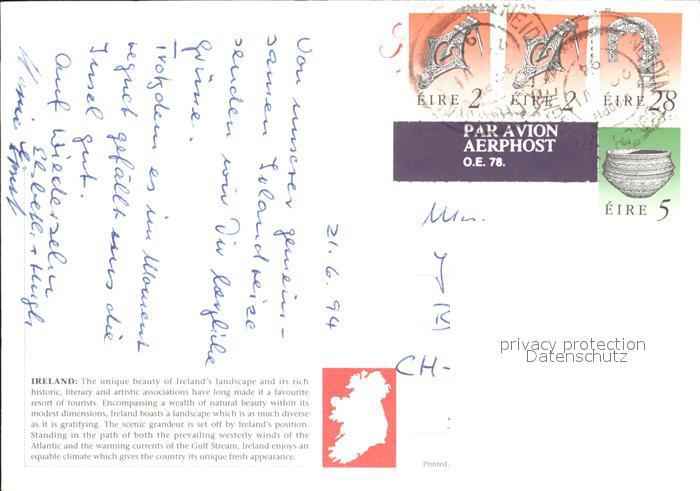 21. 6. 94
Von unserer gemein-
samen Irlandreise
senden wir Dir herzliche
Grüsse.
Trotzdem es im Moment
regnet gefällt uns die
Insel gut.
Auf Wiedersehn
Elsbeth +
ÉIRE 2
ÉIRE 2
ÉIRE 28
PAR AVION
AERPHOST
O.E. 78.
ÉIRE 5
CH-
privacy protection
Datenschutz
IRELAND: The unique beauty of Ireland's landscape and its rich
historic, literary and artistic associations have long made it a favourite
resort of tourists. Encompassing a wealth of natural beauty within its
modest dimensions, Ireland boasts a landscape which is as much diverse
as it is gratifying. The scenic grandeur is set off by Ireland's position.
Standing in the path of both the prevailing westerly winds of the
Atlantic and the warming currents of the Gulf Stream, Ireland enjoys an
equable climate which gives the country its unique fresh appearance.
Printed